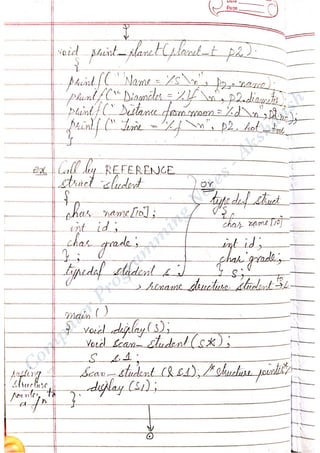 Date
Page
void print_planet(planet_t p2)
{
printf(" Name = %s\n", p2.name);
printf(" Diameter = %lf \n", p2.diameter);
printf(" Distance from moon = %d \n",
printf(" Time = %f \n", p2.
ex Call by REFERENCE
struct student or
{ typedef struct
char name[10]; {
int id; char name[10]
char grade; int id;
}; char grade;
typedef student s; } S;
rename structure student to S
main()
{ void display(S);
void scan_student(S*);
S s1;
passing scan_student (&s1); /* structure pointer */
structure display (s1);
pointer to }
a fn
Computer Programming Notes -